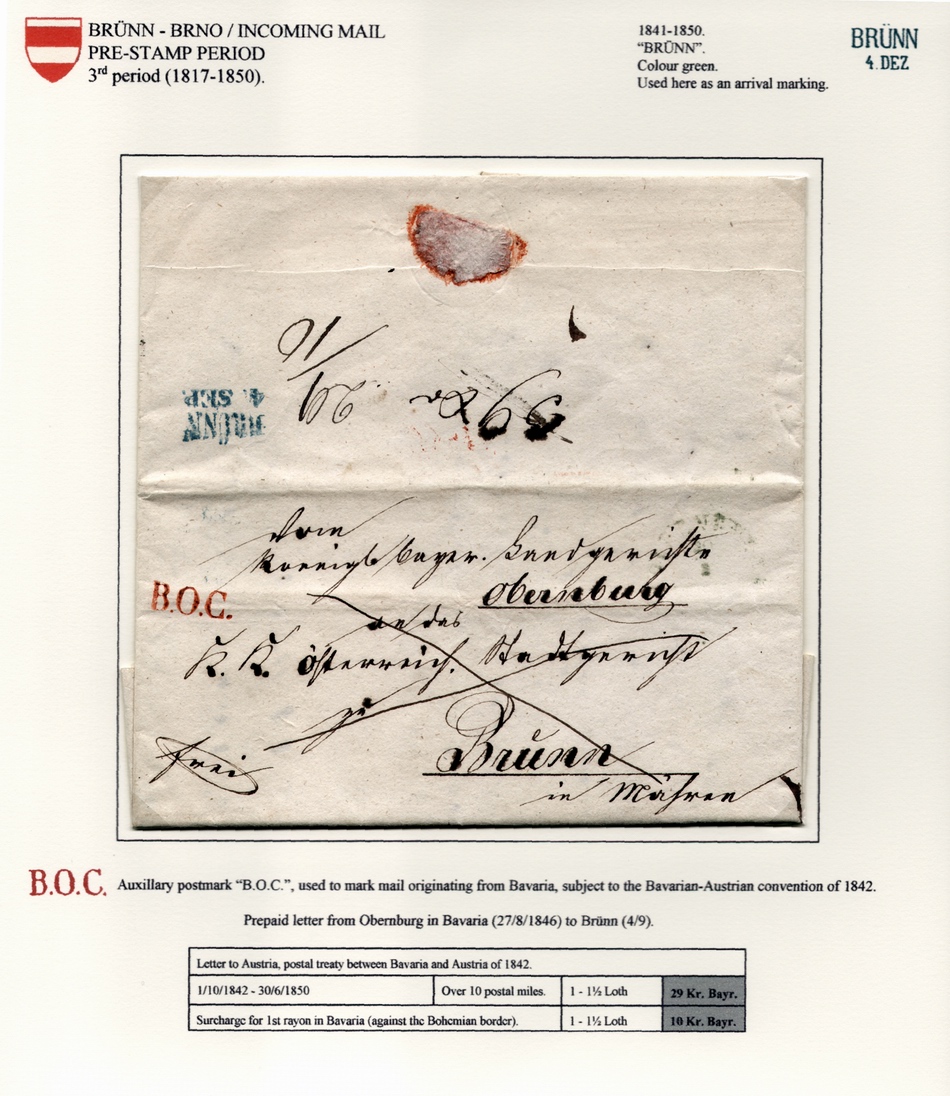 BRÜNN - BRNO / INCOMING MAIL
PRE-STAMP PERIOD
3rd period (1817-1850).
1841-1850.
“BRÜNN”.
Colour green.
Used here as an arrival marking.
BRÜNN
4. DEZ
BRÜNN
4. SEP.
Vom
Koenigl. bayer. Landgerichte
Obernburg
B.O.C.
an das
K. K. österreich. Stadtgericht
zu
Brünn
Frei
in Mähren
B.O.C.
Auxillary postmark “B.O.C.”, used to mark mail originating from Bavaria, subject to the Bavarian-Austrian convention of 1842.
Prepaid letter from Obernburg in Bavaria (27/8/1846) to Brünn (4/9).
Letter to Austria, postal treaty between Bavaria and Austria of 1842.
1/10/1842 - 30/6/1850 Over 10 postal miles. 1 - 1½ Loth 29 Kr. Bayr.
Surcharge for 1st rayon in Bavaria (against the Bohemian border). 1 - 1½ Loth 10 Kr. Bayr.